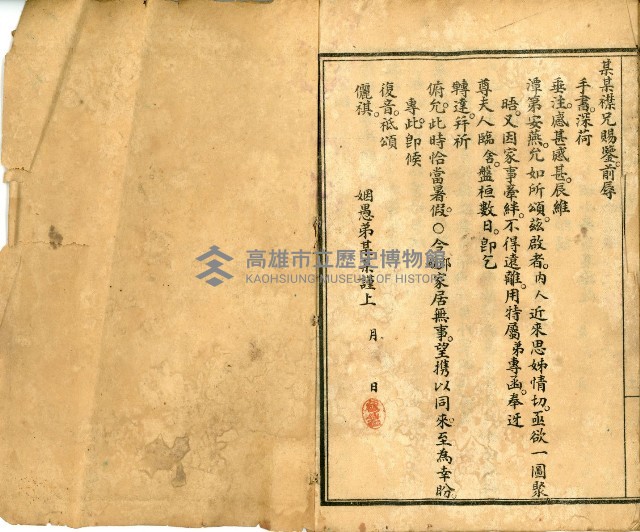 某某襟兄賜鑒。前辱
手書。深荷
垂注。感甚感甚。辰維
潭第安燕。允如所頌。茲啟者。內人近來思姊情切。亟欲一圖聚
晤。又因家事牽絆。不得遠離。用特屬弟專函奉迓
尊夫人臨舍。盤桓數日。即乞
轉達。幷祈
俯允。此時恰當暑假。○令 家居無事。望攜以同來。至為幸盼。
專此。即候
復音。祗頌
儷祺。
姻愚弟某某謹上 月 日
高雄市立歷史博物館
KAOHSIUNG MUSEUM OF HISTORY